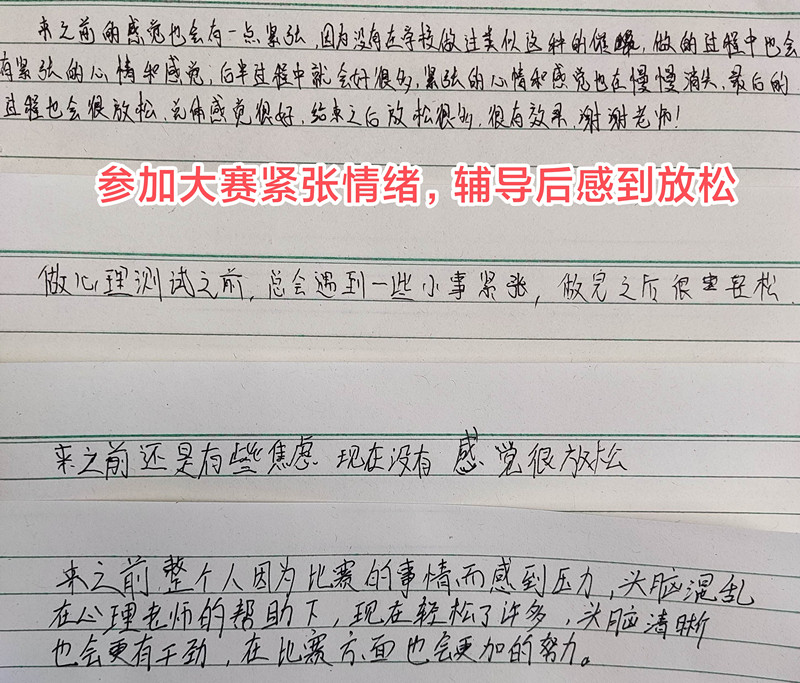 来之前的感觉也会有一点紧张,因为没有在学校做过类似这种的催眠,做的过程中也会
有紧张的心情和感觉,后半过程中就会好很多,紧张的心情和感觉也在慢慢消失,最后的
过程也会很放松,总体感觉很好,结束之后放松很多,很有效果,谢谢老师!
参加大赛紧张情绪,辅导后感到放松
做心理测试之前,总会遇到一些小事紧张,做完之后很轻松.
来之前还是有些焦虑 现在没有 感觉很放松
来之前整个人因为比赛的事情而感到压力,头脑混乱
在心理老师的帮助下,现在轻松了许多,头脑清晰
也会更有干劲,在比赛方面也会更加的努力。